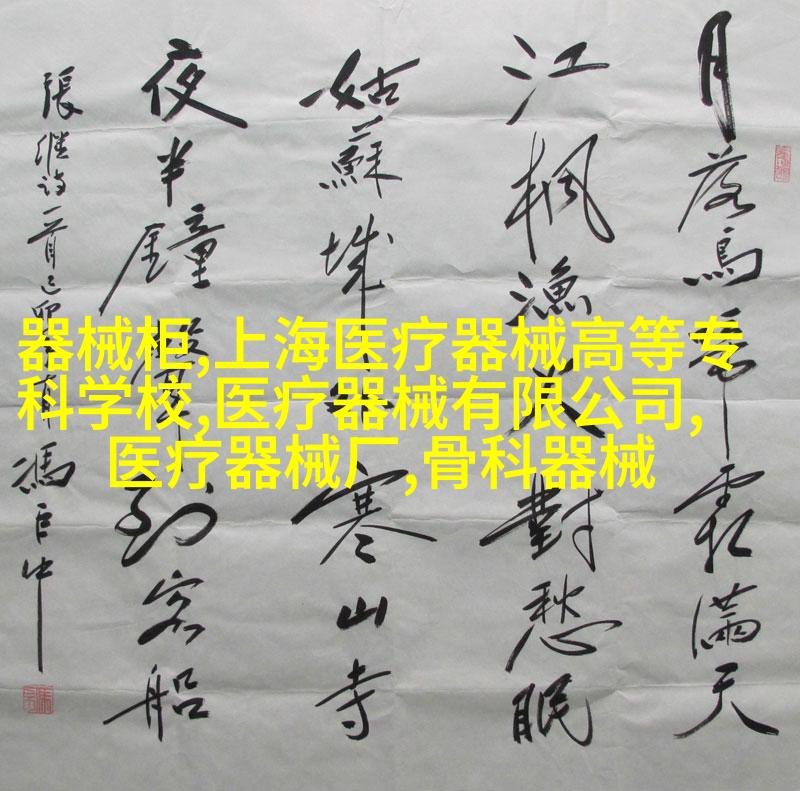 器械柜,上海医疗器械高等专
科学校,医疗器械有限公司,
医疗器械厂,骨科器械
月落烏啼霜滿天
江楓漁火對愁眠
姑蘇城外寒山寺
夜半鐘聲到客船
張繼詩一首己卯馮臣中